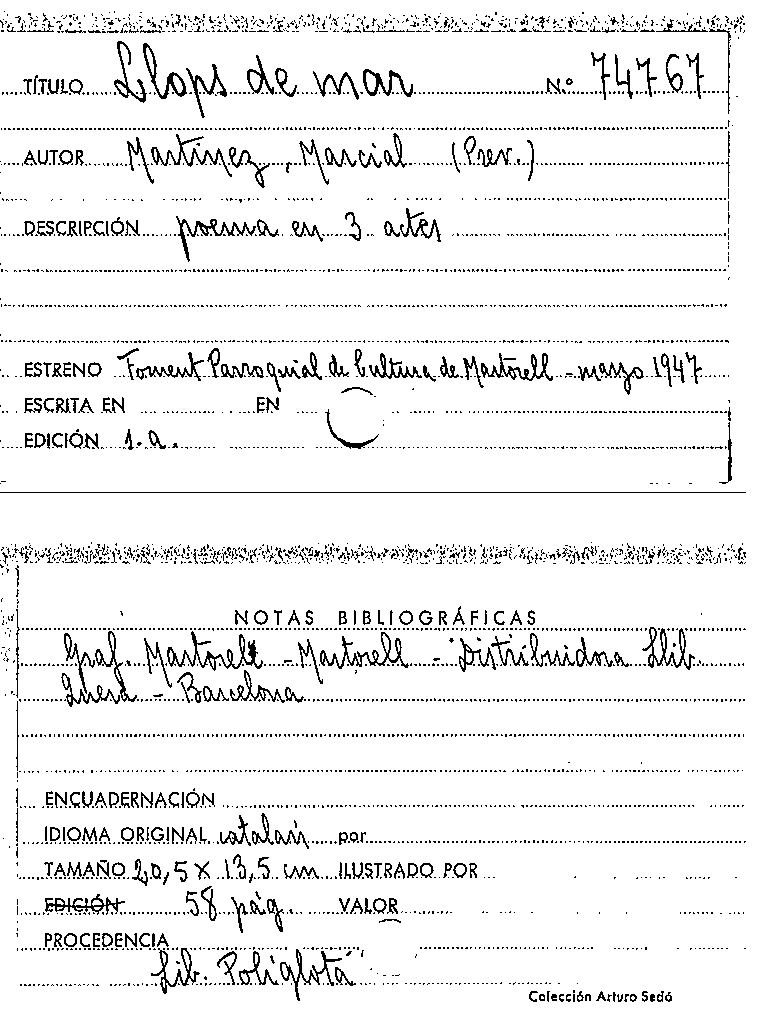 TÍTULO Llops de mar N.º 74767
AUTOR Martínez, Marcial (Prev.)
DESCRIPCIÓN poema en 3 actes
ESTRENO Foment Parroquial de Cultura de Martorell - marzo 1947
ESCRITA EN EN
EDICIÓN 1.a.
NOTAS BIBLIOGRÁFICAS
Graf. Martorell - Martorell - Distribuidora Llib.
- Barcelona
ENCUADERNACIÓN
IDIOMA ORIGINAL catalán por
TAMAÑO 20,5 X 13,5 cm ILUSTRADO POR
EDICIÓN 58 pág. VALOR
PROCEDENCIA
Lib. Políglota
Colección Arturo Sedó